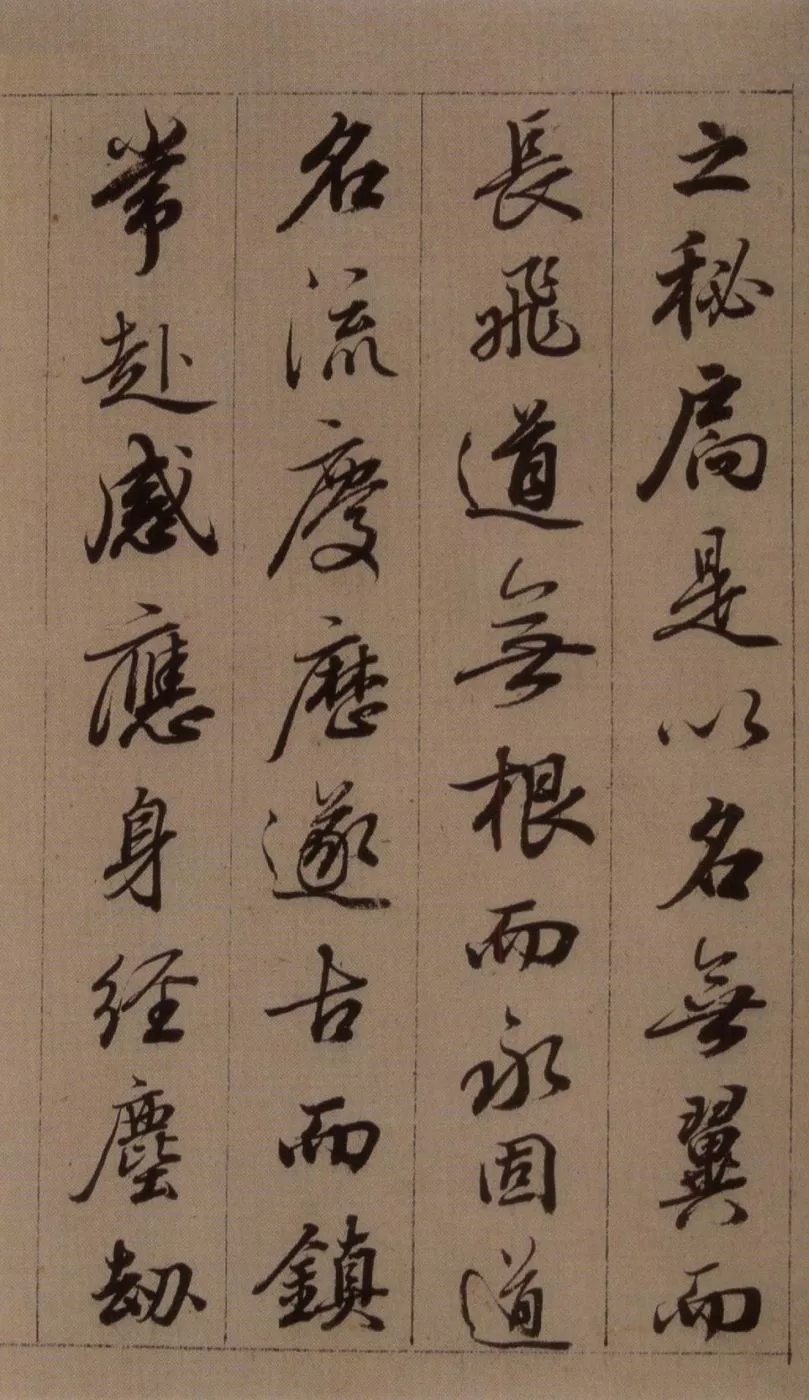 之秘扃是以名無翼而
長飛道無根而永固道
名流慶歷遂古而鎮
常赴感應身經塵劫